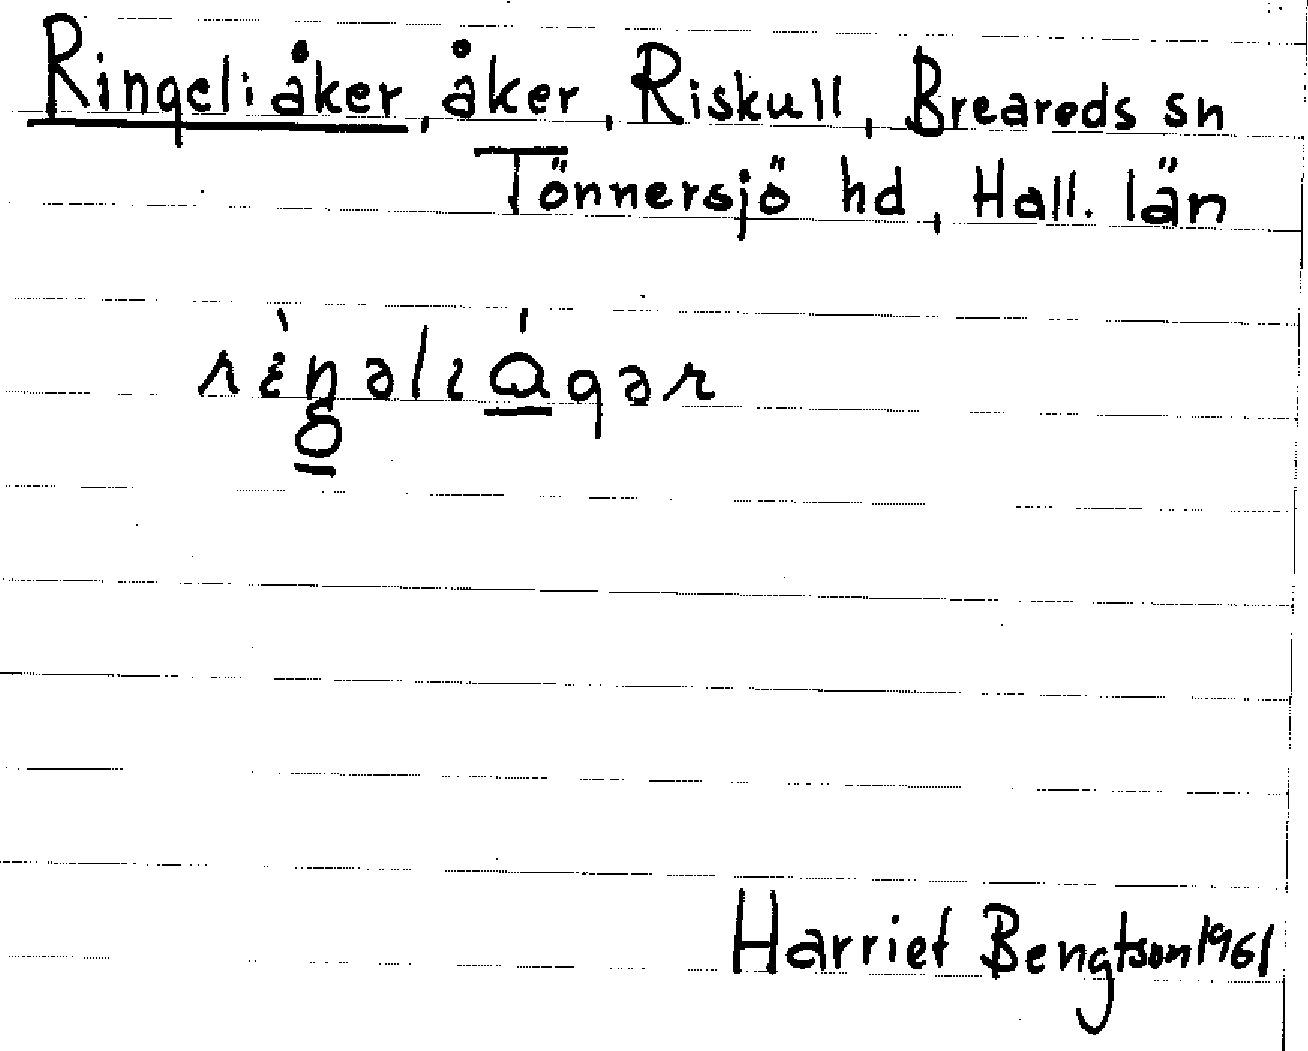 Ringeliåker, åker, Riskull, Breareds sn
Tönnersjö hd, Hall. län
Harriet Bengtson 1961